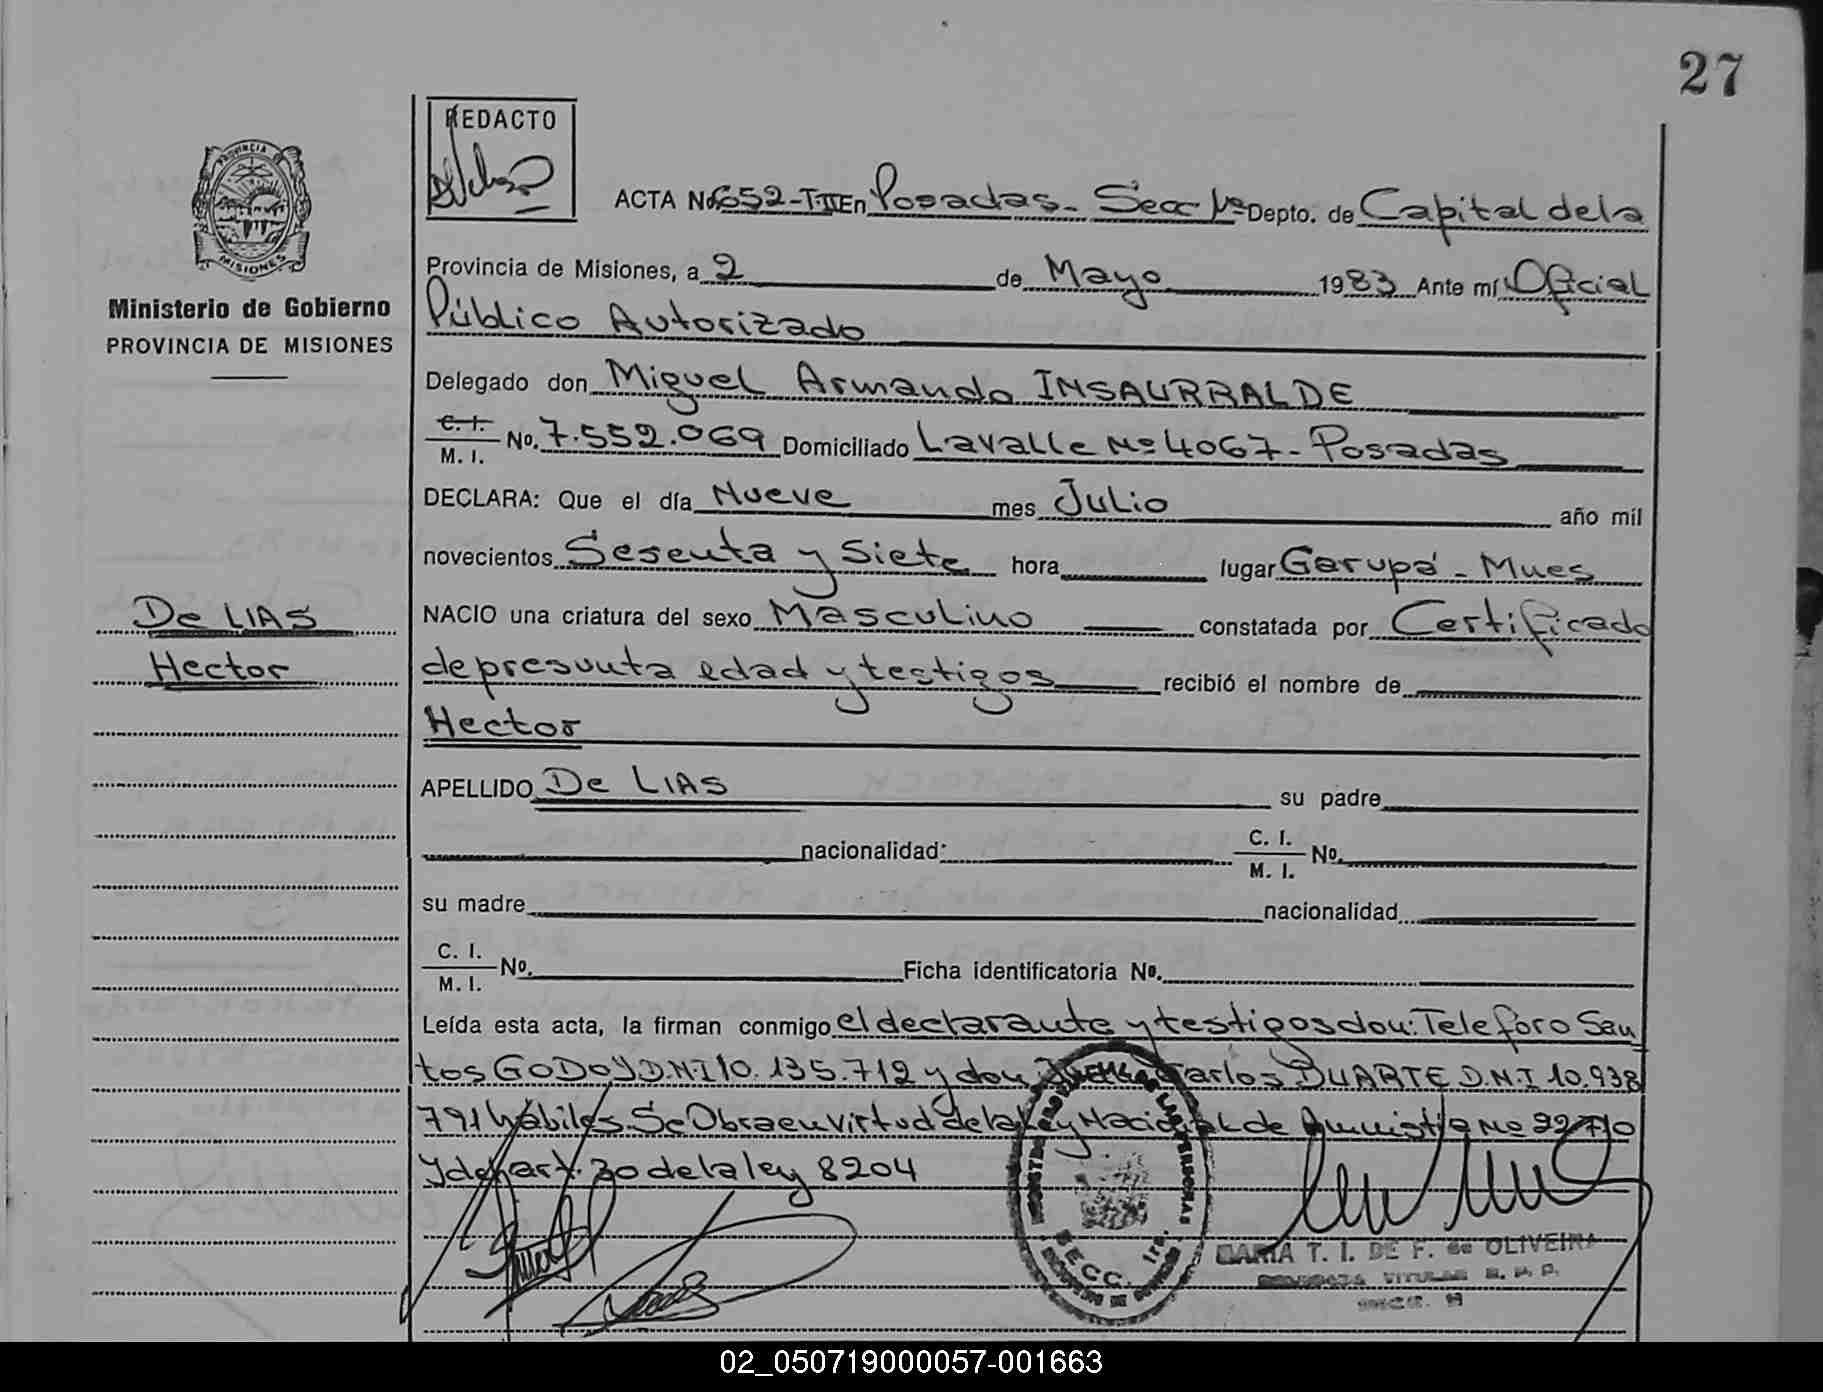 27
REDACTO
PROVINCIA DE
MISIONES
Ministerio de Gobierno
PROVINCIA DE MISIONES
De LIAS
Hector
ACTA No 652-T-II En Posadas- Secc 1ª Depto. de Capital de la
Provincia de Misiones, a 2 de Mayo 1983 Ante mí Oficial
Público Autorizado
Delegado don Miguel Armando INSAURRALDE
C. I.
M. I. No. 7.552.069 Domiciliado Lavalle Nº 4067- Posadas
DECLARA: Que el día Nueve mes Julio año mil
novecientos Sesenta y Siete hora lugar Garupá - Mnes
NACIO una criatura del sexo Masculino constatada por Certificado
de presunta edad y testigos recibió el nombre de
Hector
APELLIDO De LIAS su padre
nacionalidad: C. I.
M. I. No.
su madre nacionalidad
C. I.
M. I. No. Ficha identificatoria No.
Leída esta acta, la firman conmigo el declarante y testigos don: Teleforo San
tos GODOY D.N.I 10.135.712 y don Carlos DUARTE D.N.I 10.938
791 hábiles. Se Obra en virtud de la Ley Nacional de Amnistía Nº 22710
y del art. 30 de la ley 8204
SECC. 1ra.
MARIA T. I. DE F. de OLIVEIRA
02_050719000057-001663